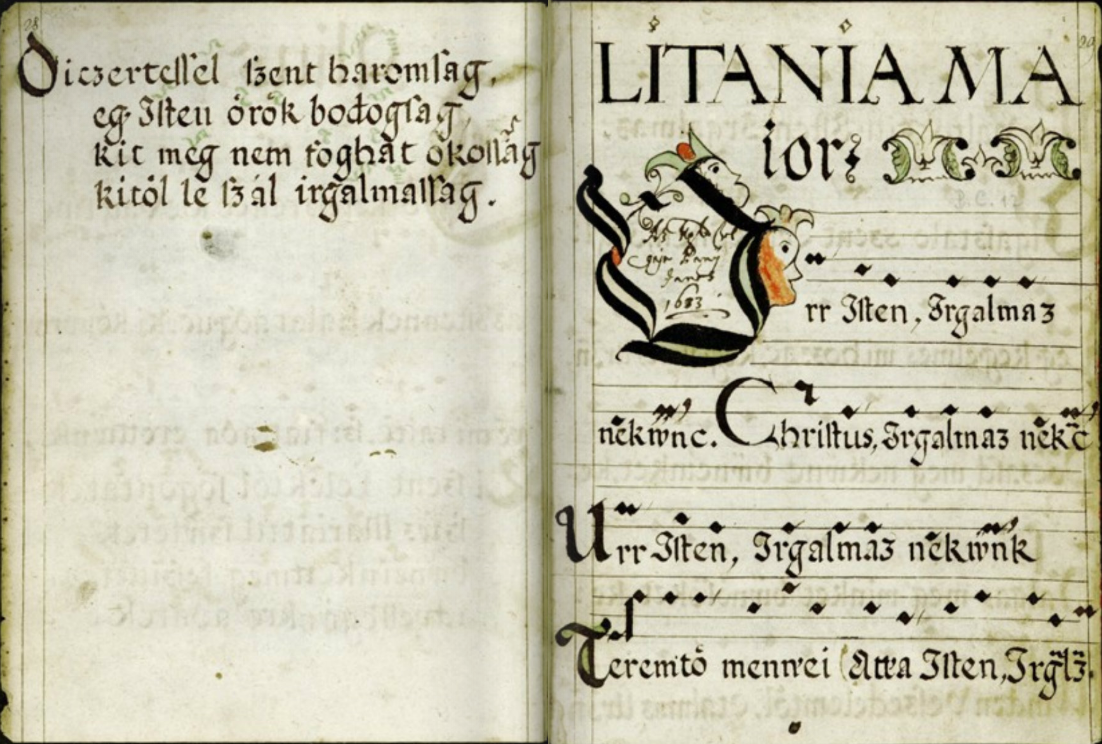 28
Diczertessel szent haromsag,
eg Isten örök bodogsag,
kit meg nem foghat okossag
kitöl le szal irgalmassag.
LITANIA MA
ior:
1683
Urr Isten, Irgalmaz
nekwnc. Christus, Irgalmaz nekc̃
Urr Isten, Irgalmaz nekwnk
Teremtö mennei Atta Isten, Irglz̃.